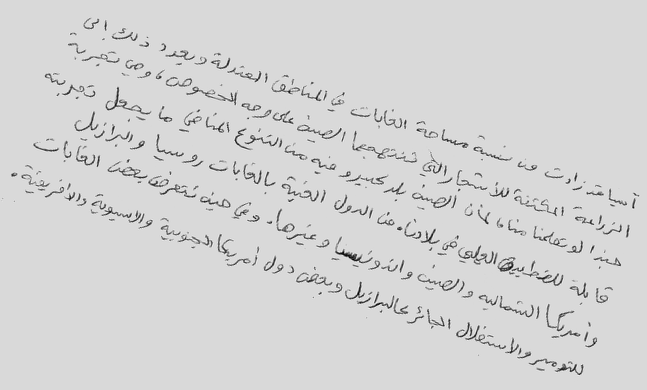 آسيا قد زادت من نسبة مساحة الغابات في المناطق المعتدلة ويعود ذلك إلى
الزراعة المكثفة للأشجار التي تنتهجها الصين على وجه الخصوص، وهي تجربة
حبذا لو تعلمنا منها، لأن الصين بلد كبير وفيه من التنوع المناخي ما يجعل تجربته
قابلة للتطبيق العملي في بلادنا. من الدول الغنية بالغابات روسيا والبرازيل
وأمريكا الشمالية والصين واندونيسيا وغيرها. وفي حين تتعرض بعض الغابات
للتدمير والاستغلال الجائر كالبرازيل وبعض دول أمريكا الجنوبية والاسيوية والافريقية.